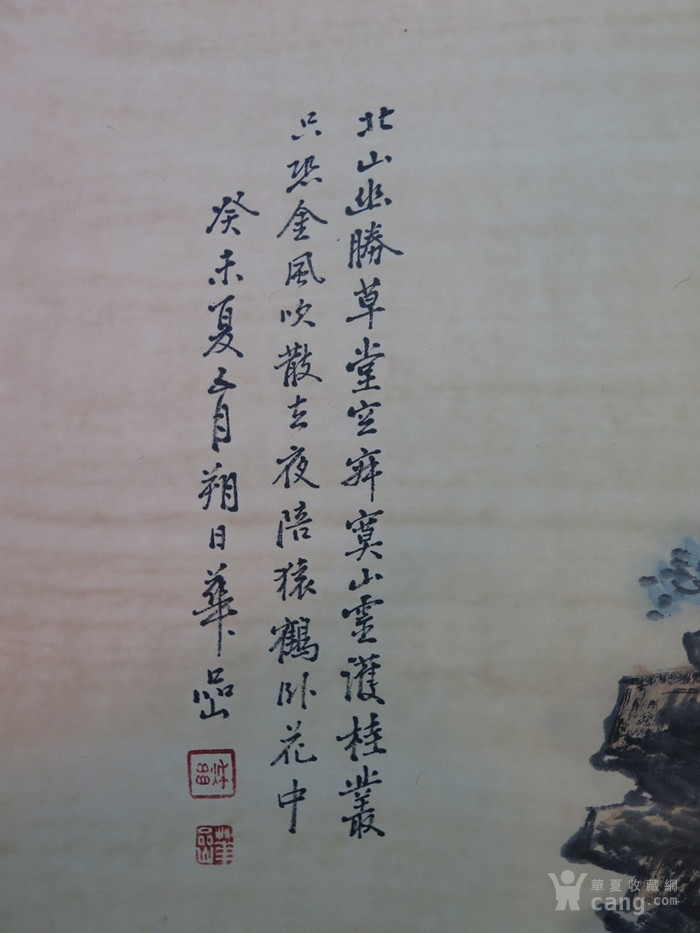 北山幽勝草堂空寂寞山靈護桂叢
只恐金風吹散去夜陪猿鶴卧花中
癸未夏五月朔日華嵒
華嵒
華夏收藏網
cang.com